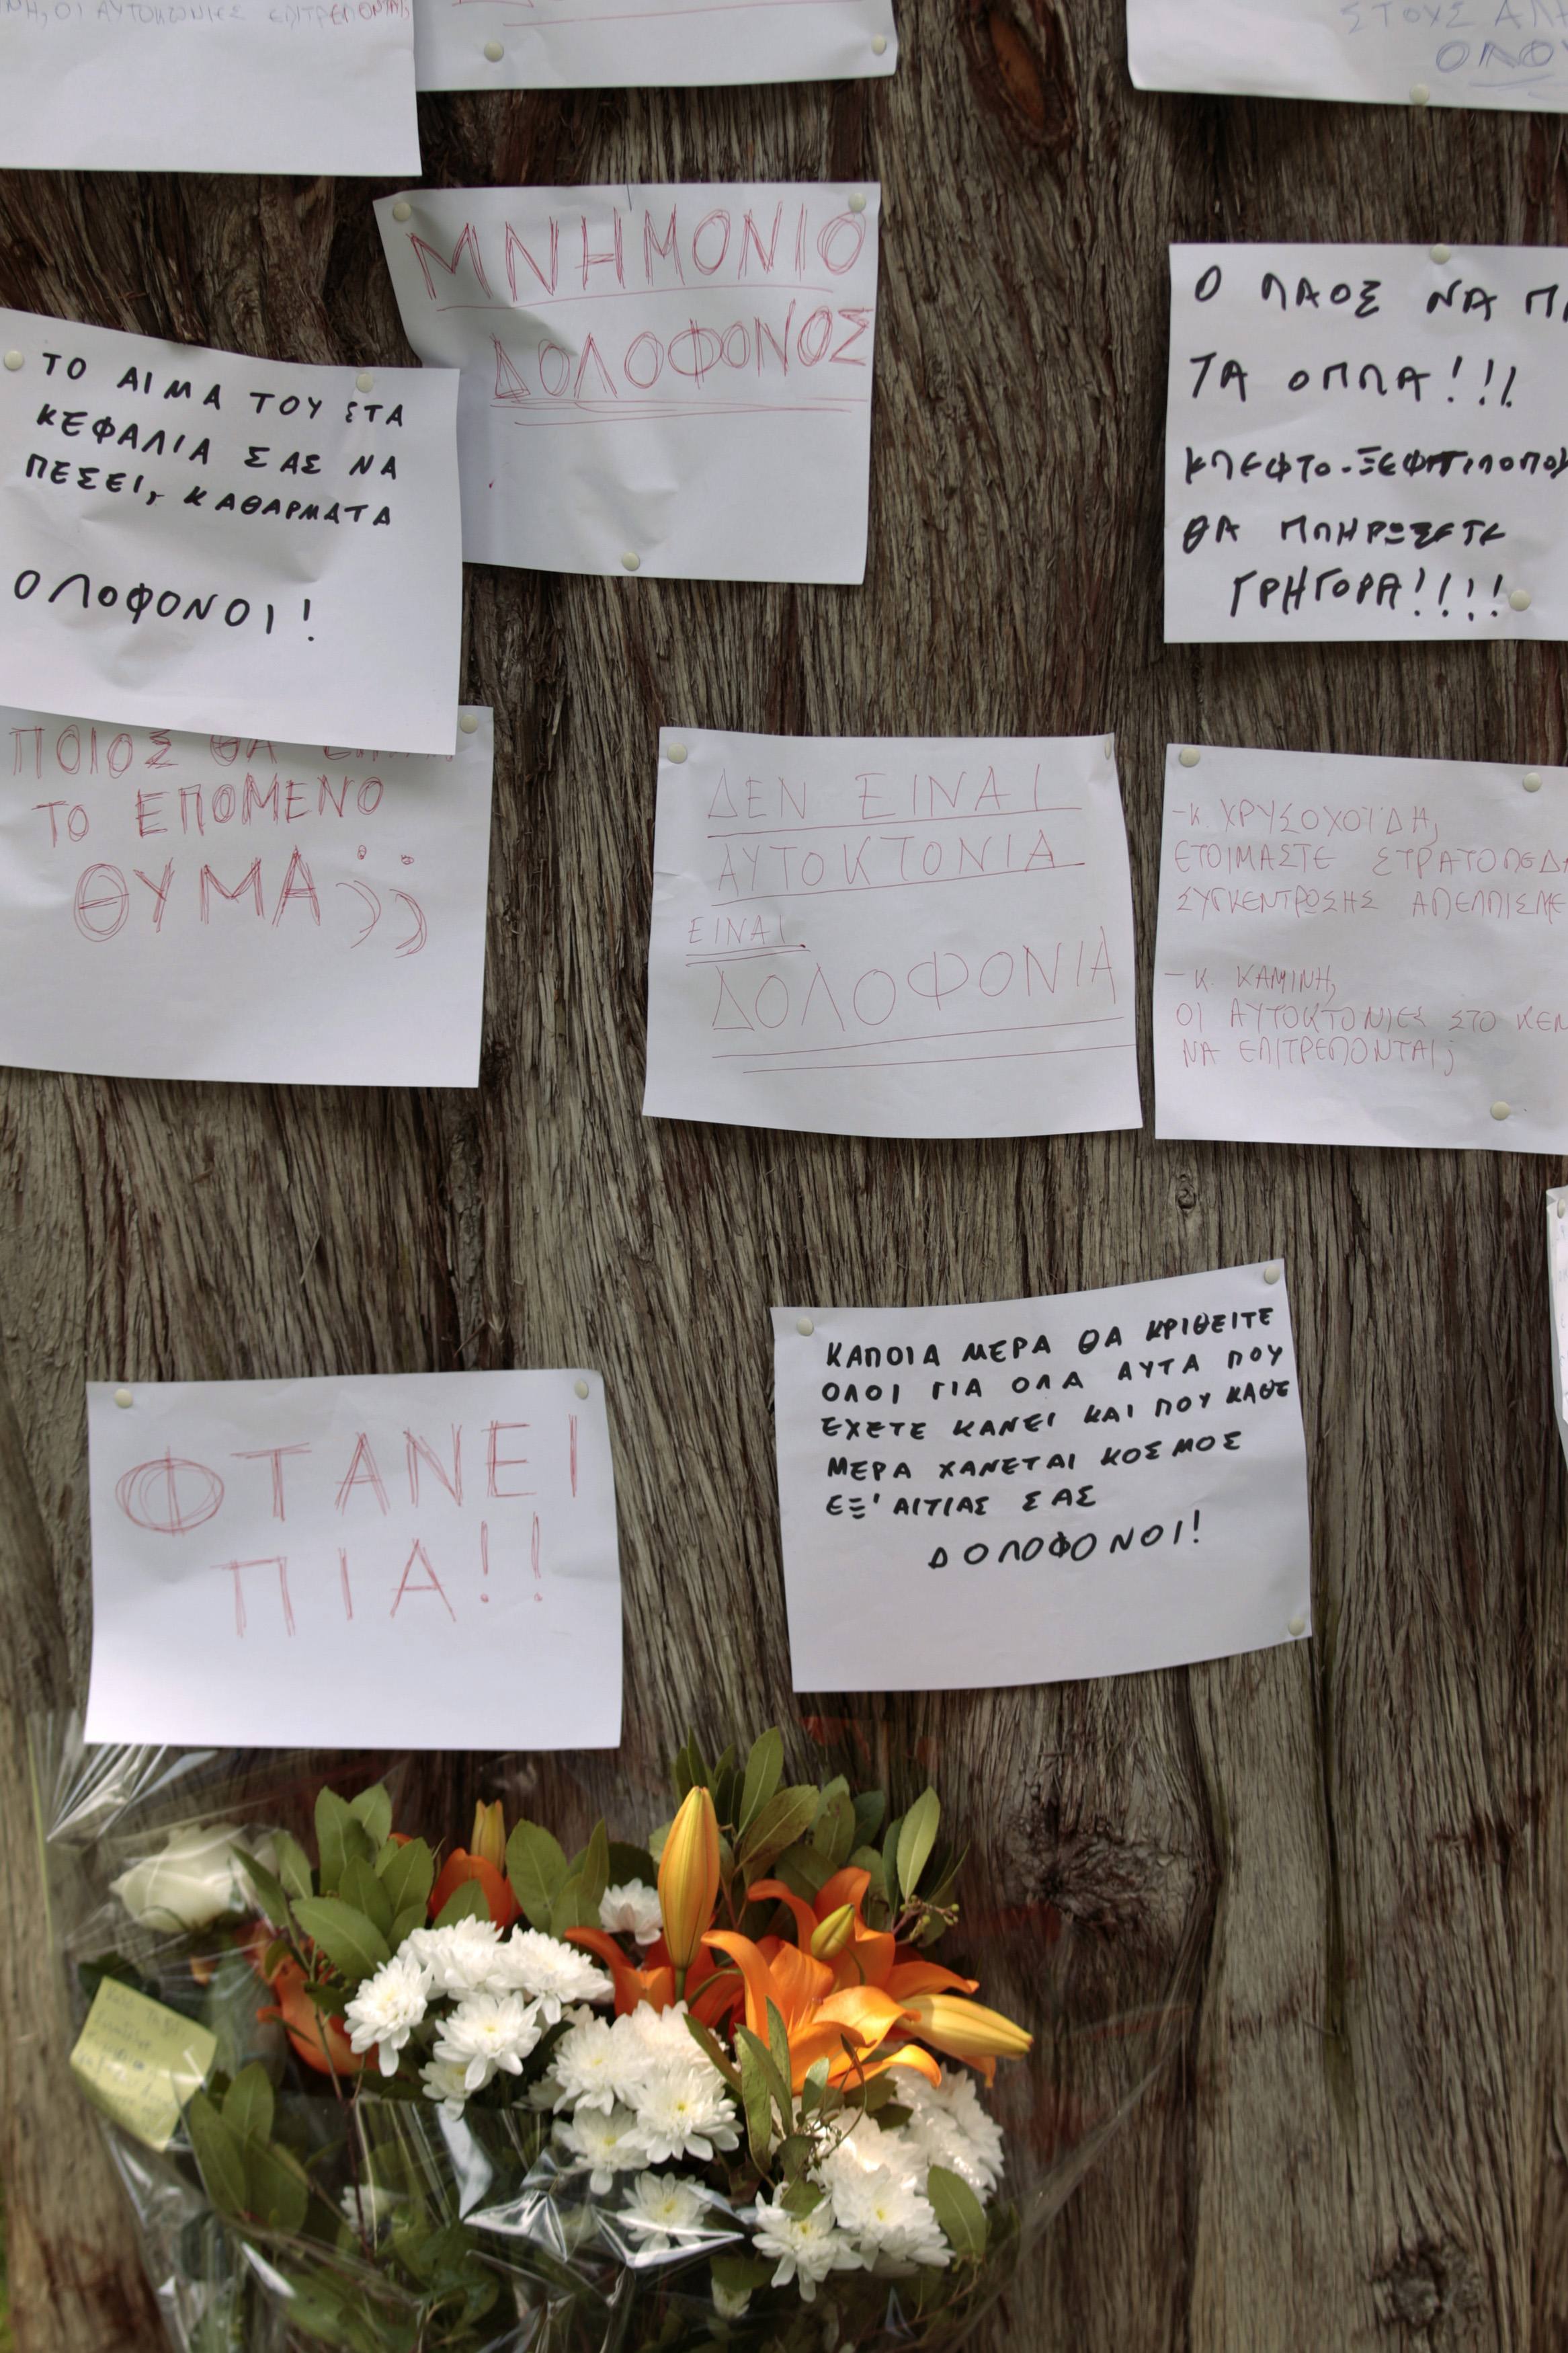 ΟΙ ΑΥΤΟΚΤΟΝΙΕΣ ΕΠΙΤΡΕΠΟΝΤΑΙ;
ΣΤΟΥΣ
ΜΝΗΜΟΝΙΟ
ΔΟΛΟΦΟΝΟΣ
ΤΟ ΑΙΜΑ ΤΟΥ ΣΤΑ
ΚΕΦΑΛΙΑ ΣΑΣ ΝΑ
ΠΕΣΕΙ, ΚΑΘΑΡΜΑΤΑ
ΟΛΟΦΟΝΟΙ!
Ο ΛΑΟΣ ΝΑ
ΤΑ ΟΠΛΑ!!!
ΚΛΕΦΤΟ-ΞΕΦΤΙΛΟΠΟΥ
ΘΑ ΠΛΗΡΩΣΕΤΕ
ΓΡΗΓΟΡΑ!!!!
ΠΟΙΟΣ ΘΑ
ΤΟ ΕΠΟΜΕΝΟ
ΘΥΜΑ;;
ΔΕΝ ΕΙΝΑΙ
ΑΥΤΟΚΤΟΝΙΑ
ΕΙΝΑΙ
ΔΟΛΟΦΟΝΙΑ
-Κ. ΧΡΥΣΟΧΟΪΔΗ,
ΕΤΟΙΜΑΣΤΕ ΣΤΡΑΤΟΠΕΔΑ
ΣΥΓΚΕΝΤΡΩΣΗΣ ΑΠΕΛΠΙΣΜΕ
-Κ. ΚΑΜΙΝΗ,
ΟΙ ΑΥΤΟΚΤΟΝΙΕΣ ΣΤΟ ΚΕΝ
ΝΑ ΕΠΙΤΡΕΠΟΝΤΑΙ;
ΚΑΠΟΙΑ ΜΕΡΑ ΘΑ ΚΡΙΘΕΙΤΕ
ΟΛΟΙ ΓΙΑ ΟΛΑ ΑΥΤΑ ΠΟΥ
ΕΧΕΤΕ ΚΑΝΕΙ ΚΑΙ ΠΟΥ ΚΑΘΕ
ΜΕΡΑ ΧΑΝΕΤΑΙ ΚΟΣΜΟΣ
ΕΞ' ΑΙΤΙΑΣ ΣΑΣ
ΔΟΛΟΦΟΝΟΙ!
ΦΤΑΝΕΙ
ΠΙΑ!!